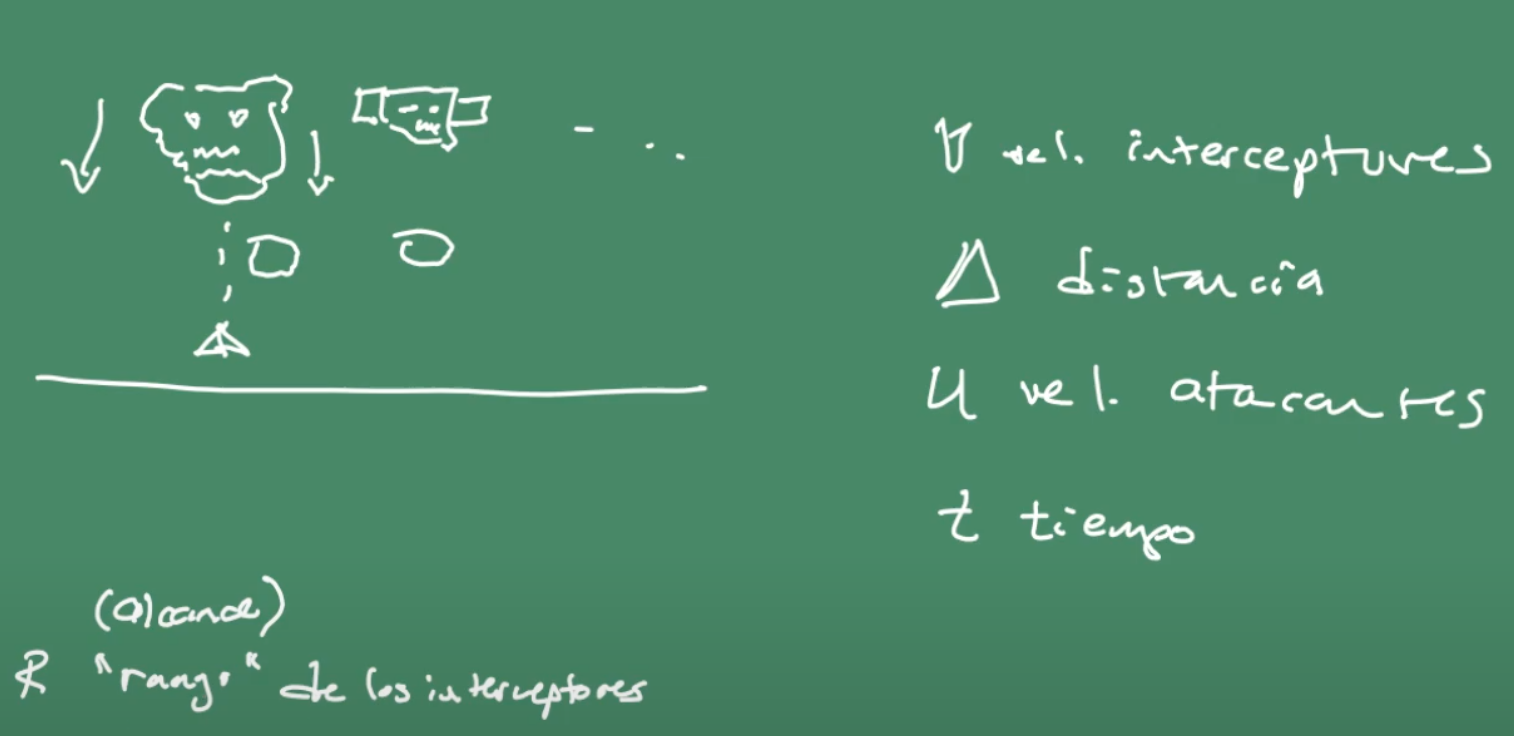 V vel. interceptores
Δ distancia
U vel. atacantes
t tiempo
(alcance)
R "rango" de los interceptores